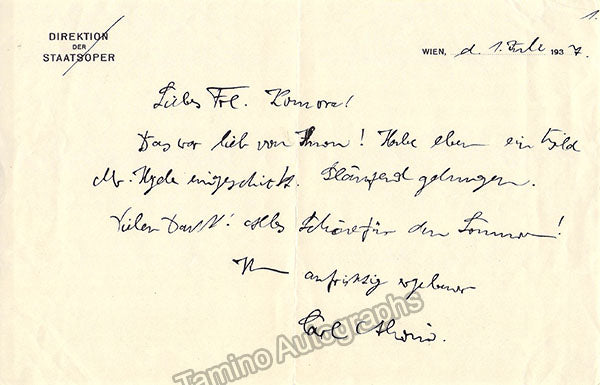 1.
DIREKTION
DER
STAATSOPER
WIEN, d. 1. Juli 1937.
Liebes Frl. Komorn!
Das war lieb von Ihnen! Habe eben ein Bild
Mr. Hyde eingeschickt. Blänzend gelungen.
Vielen Dank! Alles Schöne für den Sommer!
Ihr aufrichtig ergebener
Carl Alwin.
Tamino Autographs